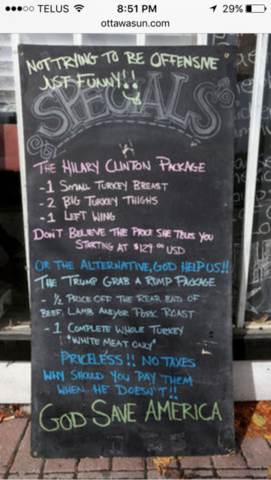 TELUS 8:51 PM 29%
ottawasun.com
NOT TRYING TO BE OFFENSIVE
JUST FUNNY!!
SPECIALS
THE HILARY CLINTON PACKAGE
- 1 SMALL TURKEY BREAST
- 2 BIG TURKEY THIGHS
- 1 LEFT WING
DON'T BELIEVE THE PRICE SHE TELLS YOU
STARTING AT $129.00 USD
OR THE ALTERNATIVE, GOD HELP US!!
THE TRUMP GRAB A RUMP PACKAGE
- ½ PRICE OFF THE REAR END OF
BEEF, LAMB AND/OR PORK ROAST
- 1 COMPLETE WHOLE TURKEY
"WHITE MEAT ONLY"
PRICELESS!! NO TAXES
WHY SHOULD YOU PAY THEM
WHEN HE DOESN'T!!
GOD SAVE AMERICA